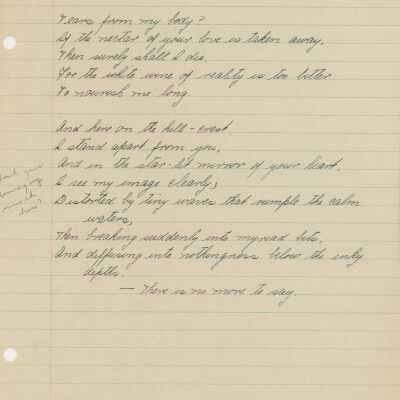 Tears from my body?
If the nectar of your love is taken away,
Then surely shall I die.
For the white wine of reality is too bitter
To nourish me long.
And here on the hill-crest
I stand apart from you,
And in the star-lit mirror of your heart,
I see my image clearly;
Distorted by tiny waves that rumple the calm
waters,
Then breaking suddenly into myriad bits,
And diffusing into nothingness below the inky
depths.
— There is no more to say.